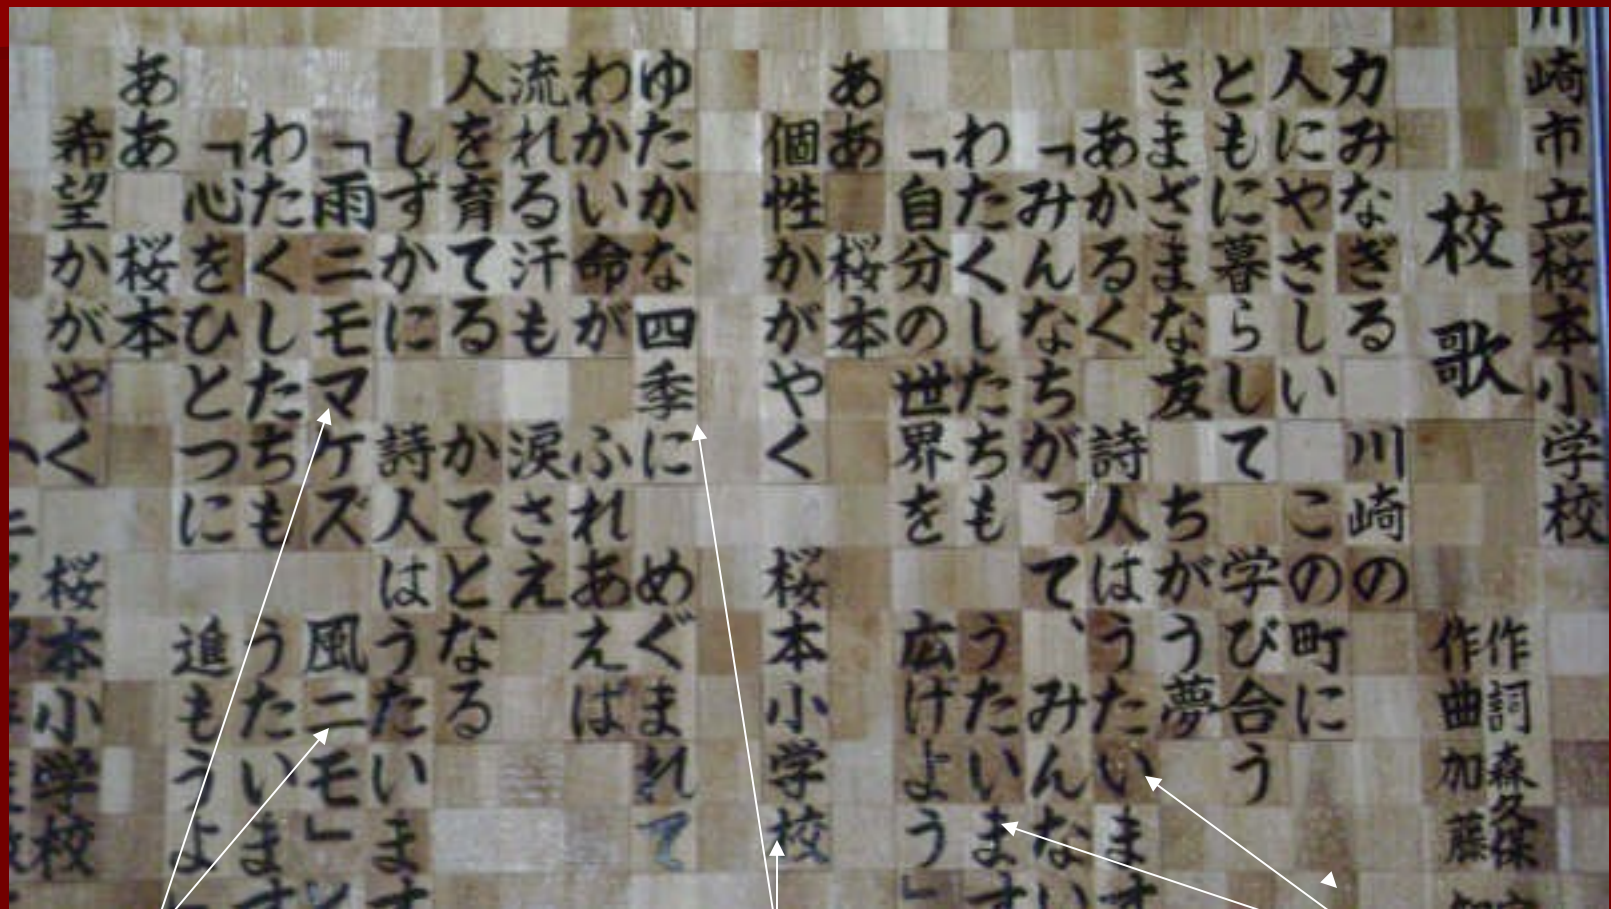 川崎市立桜本小学校
校歌
作詞 森久保
作曲 加藤
力みなぎる 川崎の
人にやさしい この町に
ともに暮らして 学び合う
さまざまな友 ちがう夢
あかるく 詩人は うたいます
「みんなちがって、みんない
わたくしたちも うたいます
「自分の世界を 広げよう」
ああ 桜本
個性かがやく 桜本小学校
ゆたかな四季に めぐまれて
わかい命が ふれあえば
流れる汗も 涙さえ
人を育てる かてとなる
しずかに 詩人は うたいます
「雨ニモマケズ 風ニモ」と
わたくしたちも うたいます
「心をひとつに 進もうよ
ああ 桜本
希望かがやく 桜本小学校